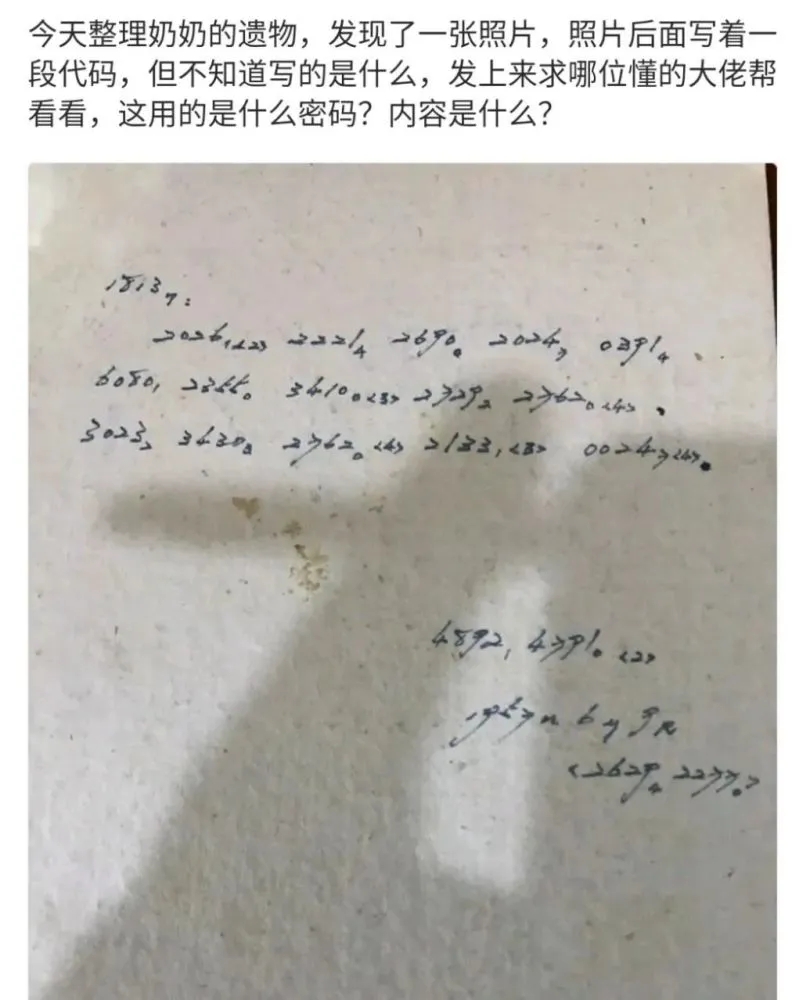 今天整理奶奶的遗物，发现了一张照片，照片后面写着一
段代码，但不知道写的是什么，发上来求哪位懂的大佬帮
看看，这用的是什么密码？内容是什么？
1813₇:
2026₁<2> 2221₄ 2690₈ 2024₇ 0391₄.
6080₁ 2366₀ 3410₀<3> 2729₂ 2762₀<4>.
3023₂ 3430₈ 2762₀<4> 2133₁<3> 0024₇<4>.
4892₁ 4791₀<2>
<2629₄ 2277₀>